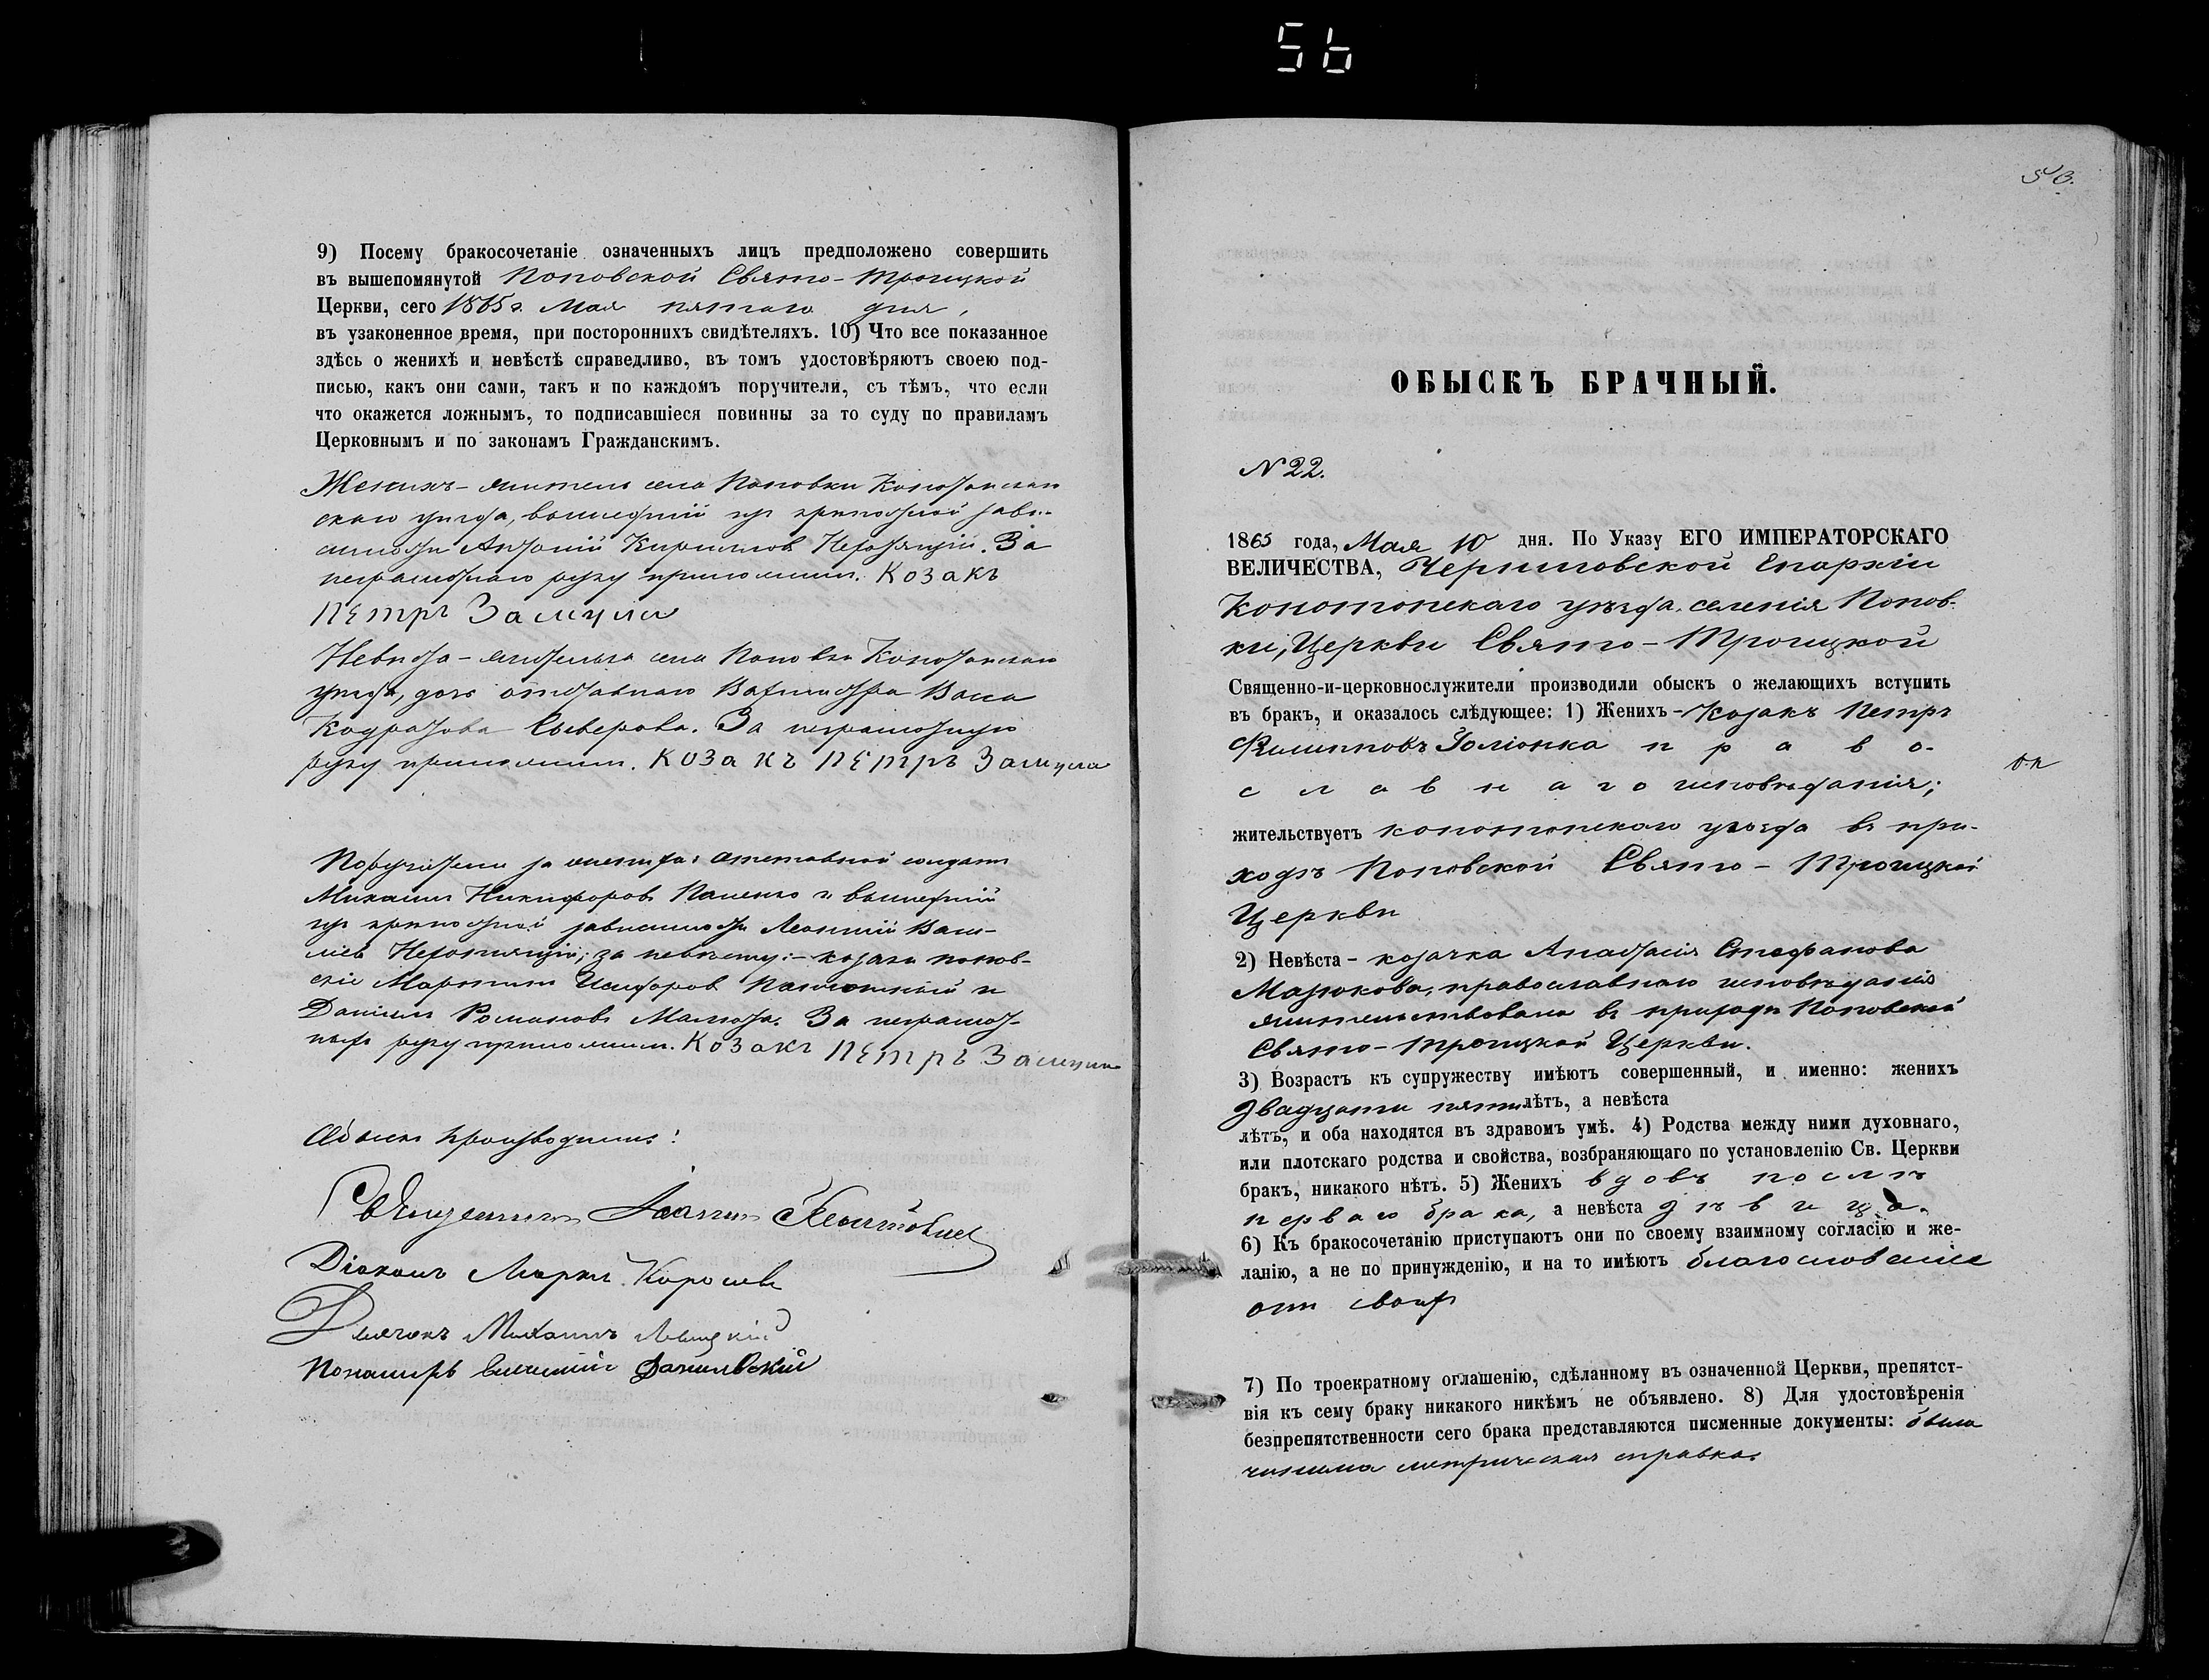 56
9) Посему бракосочетаніе означенныхъ лицъ предположено совершить
въ вышепомянутой Поповской Свято-Троицкой
Церкви, сего 1865 г. Мая пятаго дня,
въ узаконенное время, при постороннихъ свидѣтеляхъ. 10) Что все показанное
здѣсь о женихѣ и невѣстѣ справедливо, въ томъ удостовѣряютъ своею под-
писью, какъ они сами, такъ и по каждомъ поручители, съ тѣмъ, что если
что окажется ложнымъ, то подписавшіеся повинны за то суду по правиламъ
Церковнымъ и по законамъ Гражданскимъ.
Женихъ - житель села Поповки Конотоп
скаго уѣзда, вышедшій изъ крѣпостной зави-
симости Антоній Кирилловъ. За
неграмотнаго руку приложилъ. Козакъ
Пётръ
Невѣста - жителька села Поповки Конотопскаго
уѣзда, дочь отставнаго
За неграмотную
руку приложилъ. Козакъ Пётръ
Поручители за жениха: отставной солдатъ
Михаилъ Никифоровъ и вышедшій
изъ крѣпостной зависимости Леонтій Васи-
лiевъ за невѣсту: - козаки попов-
скіе Мартинъ и
Даніилъ Романовъ За неграмот-
ныхъ руку приложилъ. Козакъ Пётръ
Обыскъ производили:
Священникъ Іоаннъ
Діаконъ Маркъ
Дьячокъ Михаилъ Левицкій
Пономарь Данилевскій
56.
ОБЫСКЪ БРАЧНЫЙ.
N 22.
1865 года, Мая 10 дня. По Указу ЕГО ИМПЕРАТОРСКАГО
ВЕЛИЧЕСТВА, Черниговской Епархіи
Конотопскаго уѣзда, селенія Попов-
ки, Церкви Свято-Троицкой
Священно-и-церковнослужители производили обыскъ о желающихъ вступить
въ бракъ, и оказалось слѣдующее: 1) Женихъ - Козакъ Петръ
Филипповъ право-
славнаго исповѣданія;
жительствуетъ конотопскаго уѣзда въ при-
ходѣ Поповской Свято-Троицкой
Церкви
2) Невѣста - козачка Анастасія Стефанова
православнаго исповѣданія
жительствовала въ приходѣ Поповской
Свято-Троицкой Церкви.
3) Возрастъ къ супружеству имѣютъ совершенный, и именно: женихъ
двадцати пяти лѣтъ, а невѣста
лѣтъ, и оба находятся въ здравомъ умѣ. 4) Родства между ними духовнаго,
или плотскаго родства и свойства, возбраняющаго по установленію Св. Церкви
бракъ, никакого нѣтъ. 5) Женихъ вдовъ послѣ
перваго брака, а невѣста дѣвица.
6) Къ бракосочетанію приступаютъ они по своему взаимному согласію и же-
ланію, а не по принужденію, и на то имѣютъ благословеніе
отъ своихъ
7) По троекратному оглашенію, сдѣланному въ означенной Церкви, препятст-
вія къ сему браку никакого никѣмъ не объявлено. 8) Для удостовѣренія
безпрепятственности сего брака представляются писменные документы: была
чинима метрическая справка.